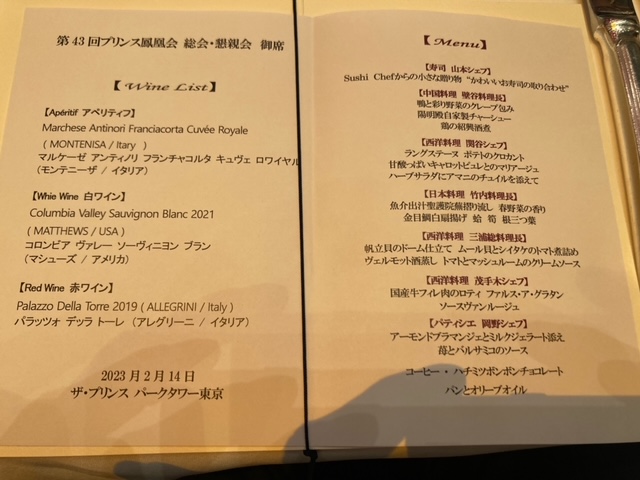 第43回プリンス鳳凰会 総会・懇親会 御席
【 Wine List】
【Apéritif アペリティフ】
Marchese Antinori Franciacorta Cuvée Royale
( MONTENISA / Itary )
マルケーゼ アンティノリ フランチャコルタ キュヴェ ロワイヤル
（モンテニーザ / イタリア）
【Whie Wine 白ワイン】
Columbia Valley Sauvignon Blanc 2021
( MATTHEWS / USA )
コロンビア ヴァレー ソーヴィニヨン ブラン
（マシューズ / アメリカ）
【Red Wine 赤ワイン】
Palazzo Della Torre 2019 ( ALLEGRINI / Italy )
パラッツォ デッラ トーレ（アレグリーニ / イタリア）
2023年2月14日
ザ・プリンス パークタワー東京
【 Menu】
【寿司 山本シェフ】
Sushi Chefからの小さな贈り物 “かわいいお寿司の取り合わせ”
【中国料理 壁谷料理長】
鴨と彩り野菜のクレープ包み
陽明殿自家製チャーシュー
鶏の紹興酒煮
【西洋料理 関谷シェフ】
ラングステーヌ ポテトのクロカント
甘酸っぱいキャロットピュレとのマリアージュ
ハーブサラダにアマニのチュイルを添えて
【日本料理 竹内料理長】
魚介出汁聖護院蕪摺り流し 春野菜の香り
金目鯛白扇揚げ 蛤 筍 根三つ葉
【西洋料理 三浦総料理長】
帆立貝のドーム仕立て ムール貝とシイタケのトマト煮詰め
ヴェルモット酒蒸し トマトとマッシュルームのクリームソース
【西洋料理 茂手木シェフ】
国産牛フィレ肉のロティ ファルス・ア・グラタン
ソースヴァンルージュ
【パティシエ 岡野シェフ】
アーモンドブラマンジェとミルクジェラート添え
苺とバルサミコのソース
コーヒー・ハチミツボンボンチョコレート
パンとオリーブオイル